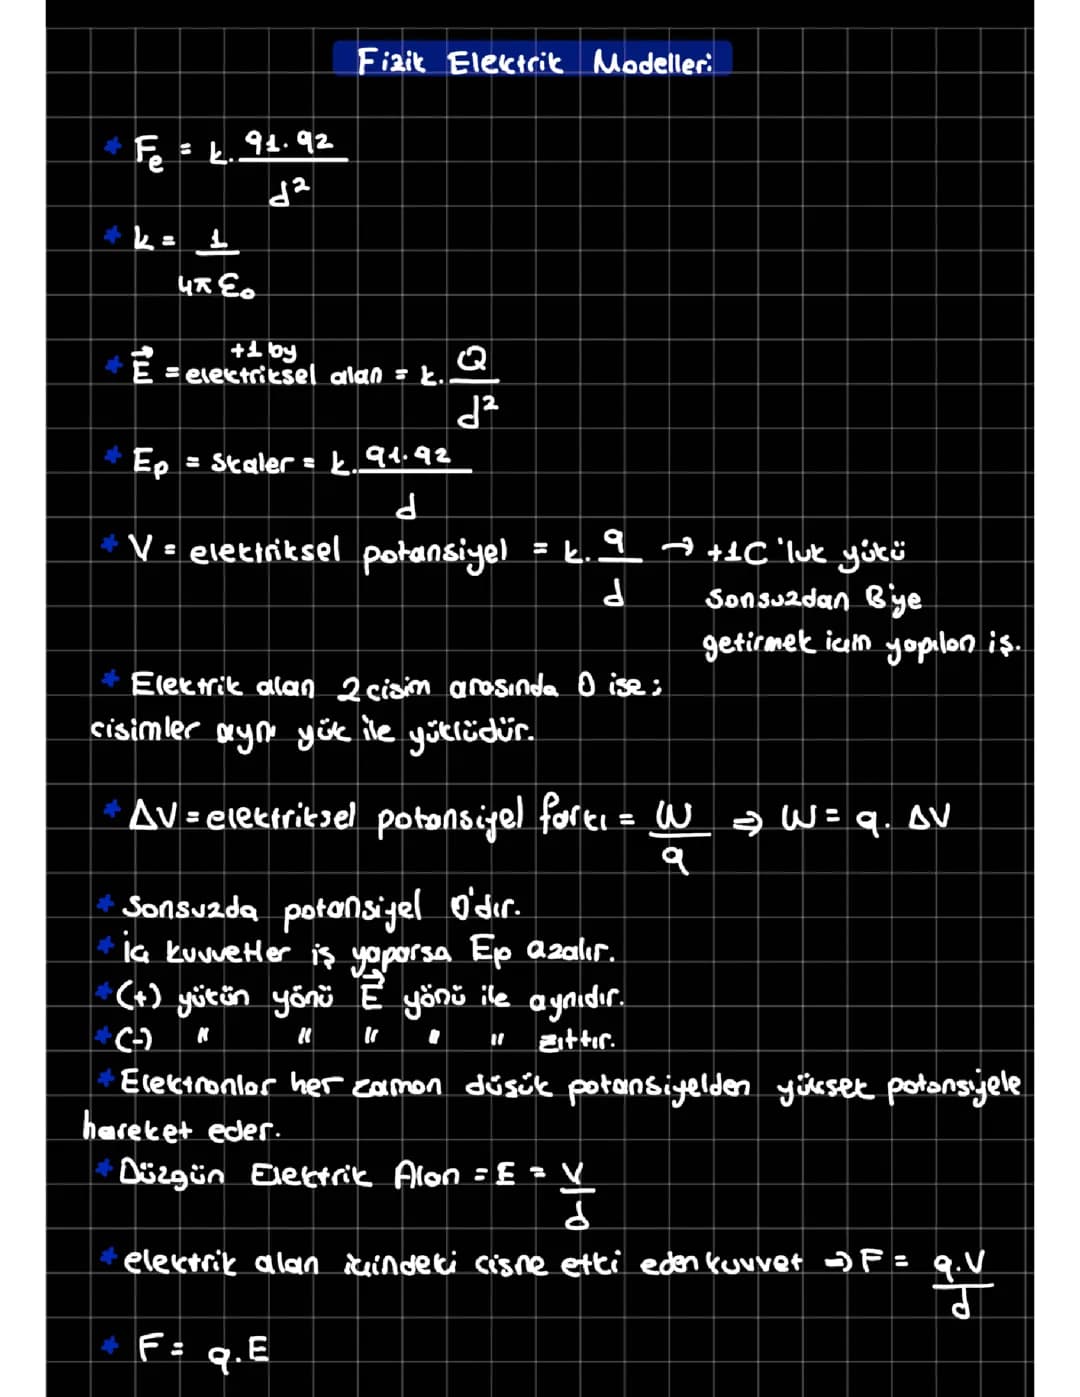 Fizik Elektrik Modeller:
* Fe = k. q1.q2 / d²
* k = 1 / 4π ε₀
+1 by
* E⃗ = elektriksel alan = k. Q / d²
* Ep = Skaler = k. q1.q2 / d
* V = elektriksel potansiyel = k. q / d → +1C'luk yükü
Sonsuzdan B'ye
getirmek için yapılan iş.
* Elektrik alan 2 cisim arasında 0 ise;
cisimler aynı yük ile yüklüdür.
* ΔV = elektriksel potansiyel farkı = W / q ⇒ W = q. ΔV
* Sonsuzda potansiyel 0'dır.
* İç kuvvetler iş yaparsa Ep azalır.
* (+) yükün yönü E⃗ yönü ile aynıdır.
* (-) " " " " " zıttır.
* Elektronlar her zaman düşük potansiyelden yüksek potansiyele
hareket eder.
* Düzgün Elektrik Alan = E = V / d
* elektrik alan içindeki cisme etki eden kuvvet ⇒ F = q.V / d
* F = q.E